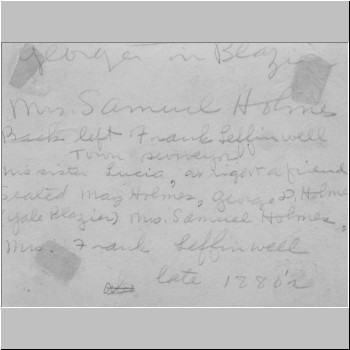 George in Blazier
Mrs. Samuel Holmes
Back left Frank Leffinwell
Town surveyor
his sister Lucia, at right a friend
Seated May Holmes, George S. Holmes
(Yale Blazier) Mrs. Samuel Holmes,
Mrs. Frank Leffinwell
late 1880's